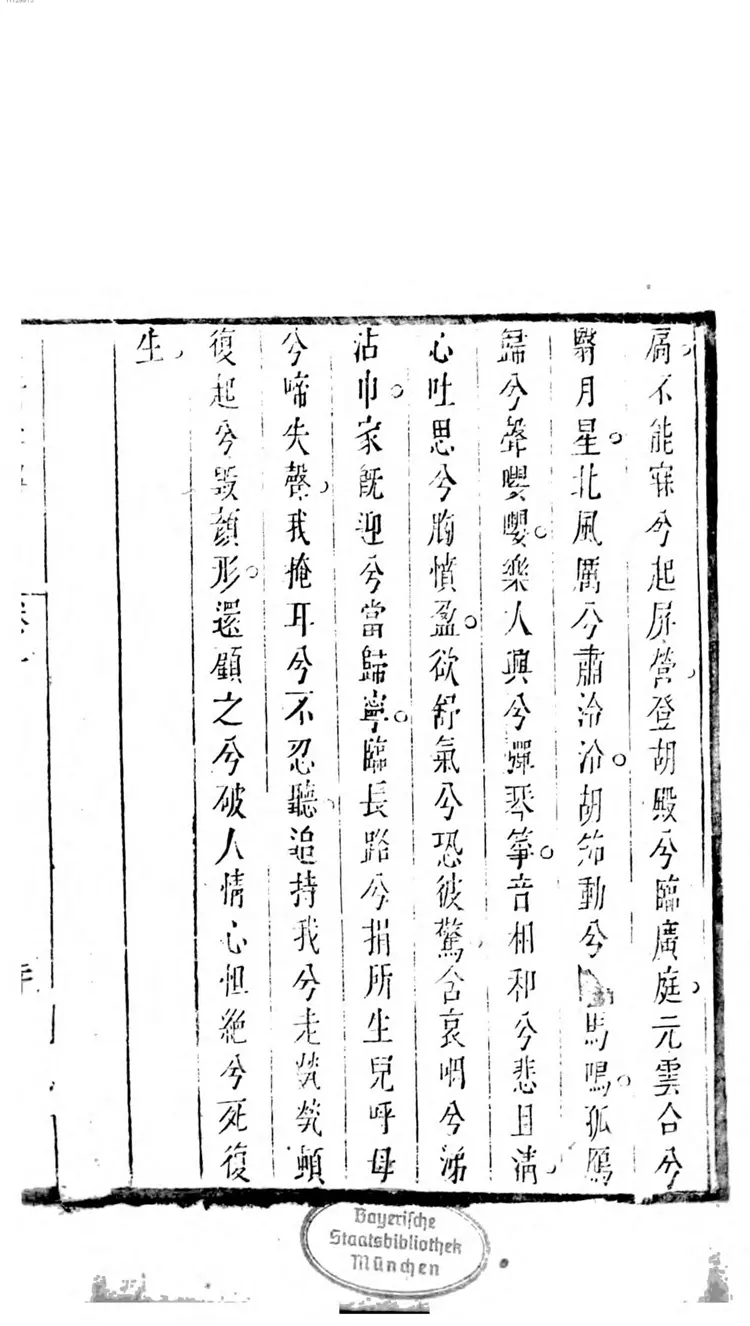 扃、不能寐兮起屏營、登胡殿兮臨廣庭、元雲合兮
翳月星。北風厲兮肅泠泠。胡笳動兮馬鳴。孤鴈
歸兮聲嚶嚶。樂人興兮彈琴箏。音相和兮悲且清、
心吐思兮胸憤盈。欲舒氣兮恐彼驚、含哀咽兮涕
沾巾。家旣迎兮當歸寧。臨長路兮捐所生兒呼母
兮啼失聲、我掩耳兮不忍聽、追持我兮走煢煢頓
復起兮毀顏形。還顧之兮破人情心怛絶兮死復
生、
Bayerische
Staatsbibliothek
München